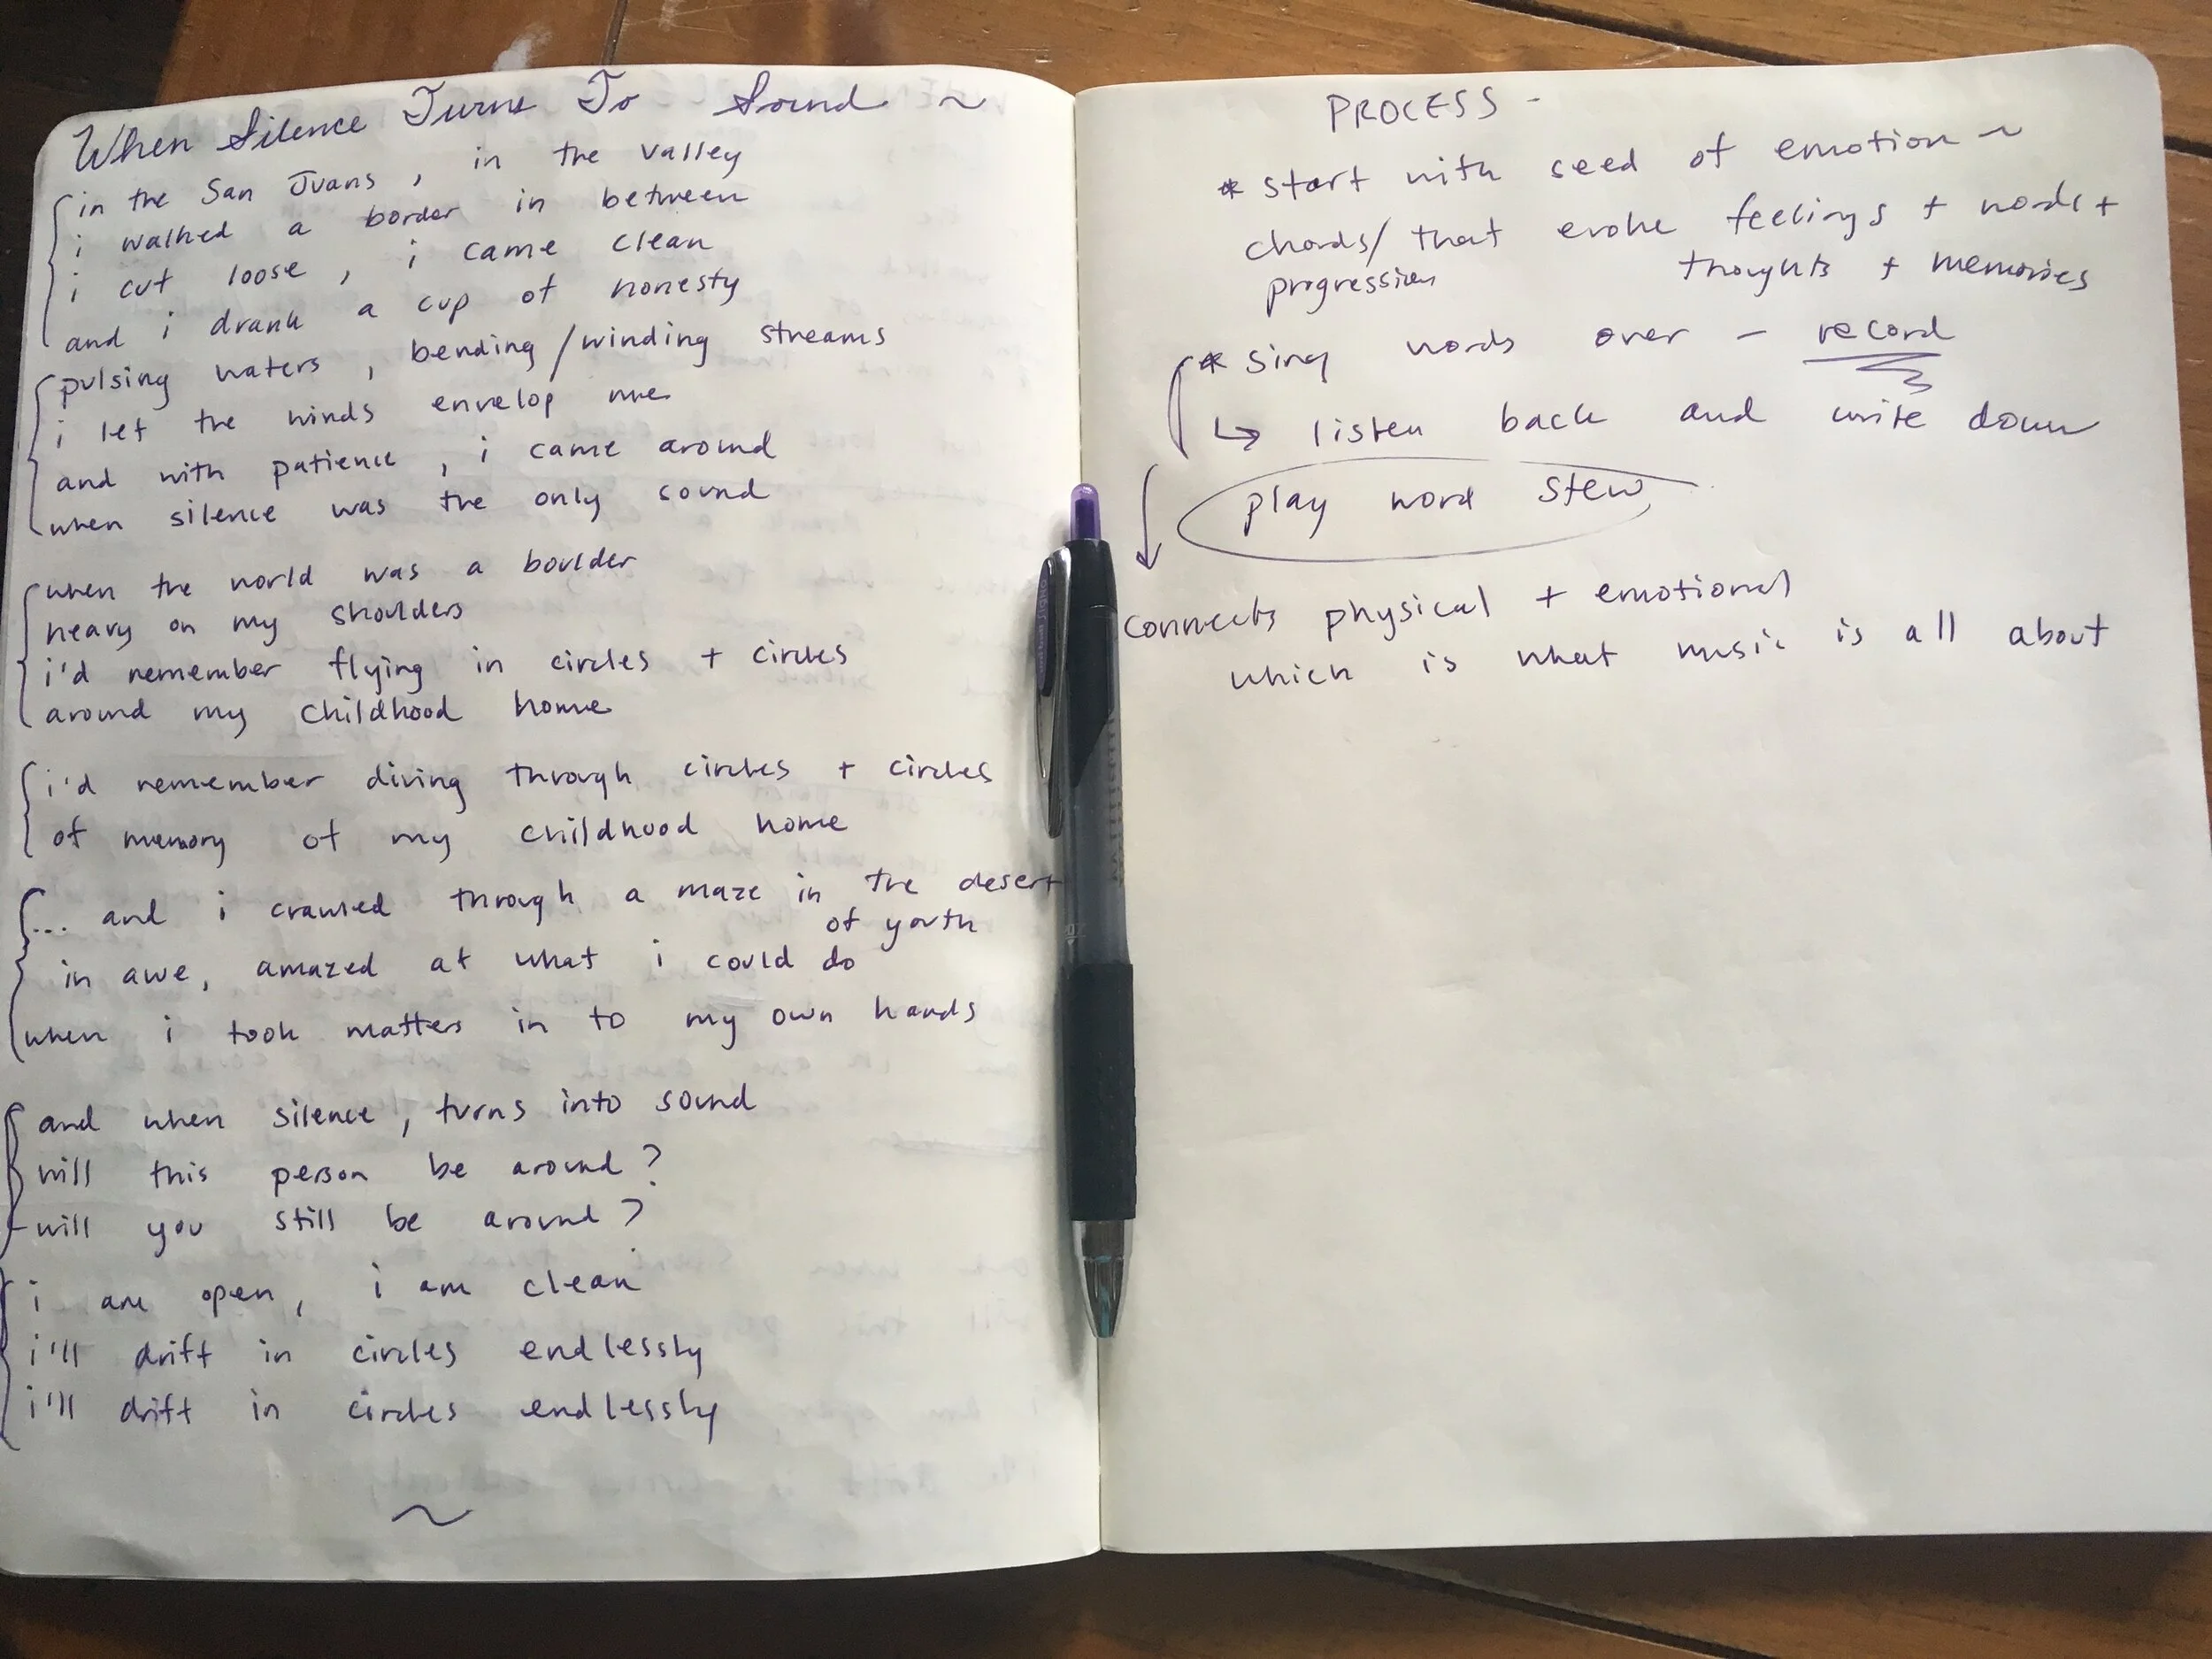 When Silence Turns To Sound ~
in the San Juans, in the valley
i walked a border in between
i cut loose, i came clean
and i drank a cup of honesty
pulsing waters, bending/winding streams
i let the winds envelop me
and with patience, i came around
when silence was the only sound
when the world was a boulder
heavy on my shoulders
i'd remember flying in circles + circles
around my childhood home
i'd remember diving through circles + circles
of memory of my childhood home
... and i crawled through a maze in the desert
of youth
in awe, amazed at what i could do
when i took matters in to my own hands
and when silence, turns into sound
will this person be around?
will you still be around?
i am open, i am clean
i'll drift in circles endlessly
i'll drift in circles endlessly
~
PROCESS -
* start with seed of emotion ~
chords/ that evoke feelings + words +
progression thoughts + memories
* sing words over - record
↳ listen back and write down
play word stew
connects physical + emotional
which is what music is all about